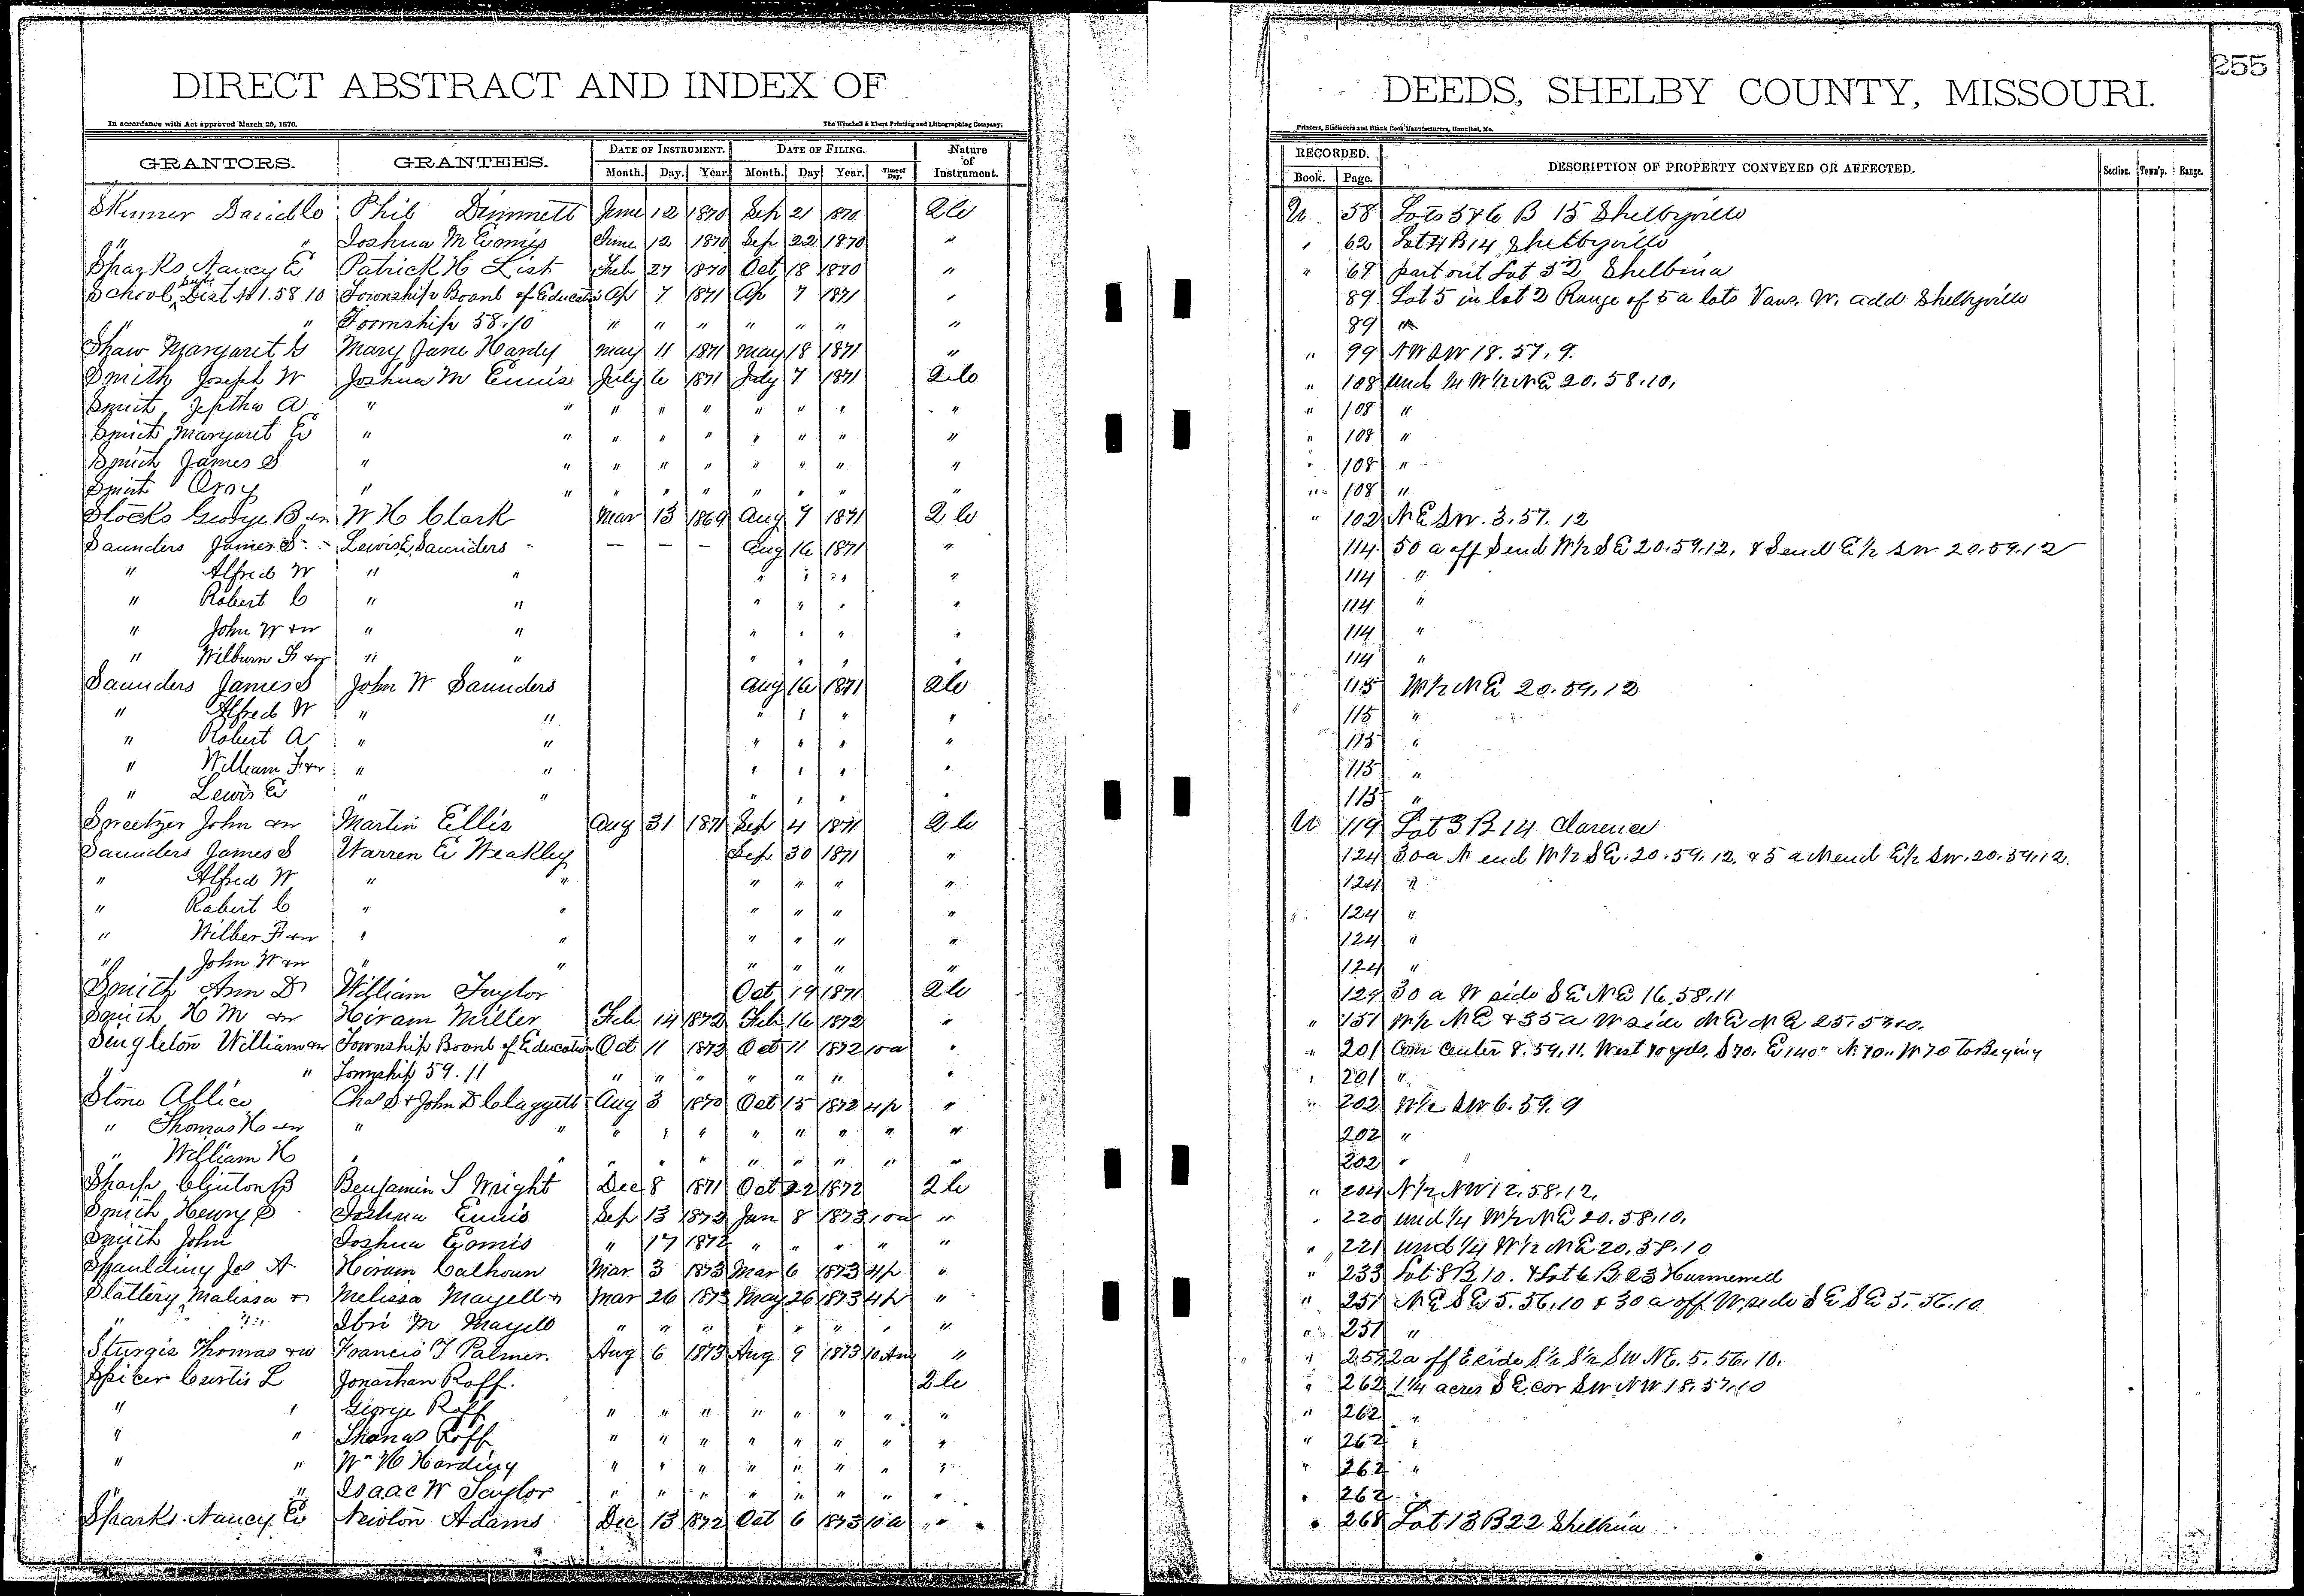 255
DIRECT ABSTRACT AND INDEX OF DEEDS, SHELBY COUNTY, MISSOURI.
In accordance with Act approved March 25, 1870. The Winchell & Ebert Printing and Lithographing Company, Printers, Stationers and Blank Book Manufacturers, Hannibal, Mo.
GRANTORS. GRANTEES. DATE OF INSTRUMENT. DATE OF FILING. Nature of Instrument. RECORDED. DESCRIPTION OF PROPERTY CONVEYED OR AFFECTED. Section. Town'p. Range.
Month. Day. Year. Month. Day Year. Time of Day. Book. Page.
Skinner Phil Dimmett June 12 1870 Sep 21 1870 58 Lots 5 & 6 B 15 Shelbyville
" " Joshua M Ennis June 12 1870 Sep 22 1870 " " 62 Lot 4 B 14 Shelbyville
Sparks Nancy E Patrick H List Feb 27 1870 Oct 18 1870 " " 69 part out Lot 32 Shelbina
School Dist No 1. 58 10 Township Board of Education Ap 7 1871 Ap 7 1871 " 89 Lot 5 in lot 2 Range of 5 a lots Vans. W. add Shelbyville
" " Township 58.10 " " " " " " " 89 "
Shaw Margaret Mary Jane Hardy May 11 1871 May 18 1871 " " 99 NW SW 18. 57. 9.
Smith Joseph W Joshua M Ennis July 6 1871 July 7 1871 " 108 und 1/4 W 1/2 NE 20. 58. 10.
Smith Jeptha A " " " " " " " " " " 108 "
Smith Margaret E " " " " " " " " " " 108 "
Smith James S " " " " " " " " " " 108 "
Smith " " " " " " " " " " 108 "
Stocks George B W H Clark Mar 13 1869 Aug 9 1871 " 102 NE SW. 3. 57. 12
Saunders James S Lewis E Saunders - - - Aug 16 1871 " 114 50 a off S end W 1/2 SE 20. 59. 12. & S end E 1/2 SW 20. 59. 12
" Alfred W " " " " " " 114 "
" Robert C " " " " " " 114 "
" John W & w " " " " " " 114 "
" Wilburn F & w " " " " " " 114 "
Saunders James S John W Saunders Aug 16 1871 115 W 1/2 NE 20. 59. 12
" Alfred W " " " " " " 115 "
" Robert A " " " " " " 115 "
" William F & w " " " " " " 115 "
" Lewis E " " " " " " 115 "
John & w Martin Ellis Aug 31 1871 Sep 4 1871 119 Lot 3 B 14 Clarence
Saunders James S Warren E Weakley Sep 30 1871 " 124 30 a N end W 1/2 SE. 20. 59. 12. & 5 a N end E 1/2 SW. 20. 59. 12.
" Alfred W " " " " " " 124 "
" Robert C " " " " " " 124 "
" Wilber F & w " " " " " " 124 "
" John W & w " " " " " " 124 "
Smith Ann D William Taylor Oct 19 1871 129 30 a W side SE NE 16. 58. 11
Smith H M & w Hiram Miller Feb 14 1872 Feb 16 1872 " " 151 W 1/2 NE & 35 a W side NE NE 25. 57 10.
Singleton William & w Township Board of Education Oct 11 1872 Oct 11 1872 10 a " " 201 Com Center 8. 59. 11. West 70 yds. S 70. E 140 " N. 70 .. W 70 to Beging
" " Township 59. 11 " " " " " " " " 201 "
Stone Allice Chas S & John D Claggett Aug 3 1870 Oct 15 1872 4 p " " 202 W 1/2 SW 6. 59. 9
" Thomas H & w " " " " " " " " " " 202 "
" William H " " " " " " " " " " 202 "
Sharp Clinton B Benjamin S Wright Dec 8 1871 Oct 22 1872 " 204 N 1/2 NW 12. 58. 12.
Smith Henry Joshua Ennis Sep 13 1872 Jan 8 1873 10 a " " 220 und 1/4 W 1/2 NE 20. 58. 10.
Smith John Joshua Ennis " 17 1872 " " " " " " 221 und 1/4 W 1/2 NE 20. 58. 10
Spaulding Jas A Hiram Calhoun Mar 3 1873 Mar 6 1873 4 p " " 233 Lot 8 B 10. & Lot 6 B 23 Hunnewell
Slattery Malissa & Melissa Mayell & Mar 26 1873 May 26 1873 4 p " " 257 NE SE 5. 56. 10 & 30 a off W side SE SE 5. 56. 10
" M Mayell " " " " " " " " 257 "
Sturgis Thomas & w Francis T Palmer. Aug 6 1873 Aug 9 1873 10 Am " " 259 2 a off E side S 1/2 S 1/2 SW NE. 5. 56. 10.
Spicer Curtis L Jonathan Roff. " 262 1 1/4 acres SE cor SW NW 18. 57. 10
" " George Roff " " " " " " " " " 262 "
" " Thomas Roff " " " " " " " " " 262 "
" " Wm H Harding " " " " " " " " " 262 "
" " Isaac W Taylor " " " " " " " " " 262 "
Sparks Nancy E Newton Adams Dec 13 1872 Oct 6 1873 10 a " " 268 Lot 13 B 22 Shelbina